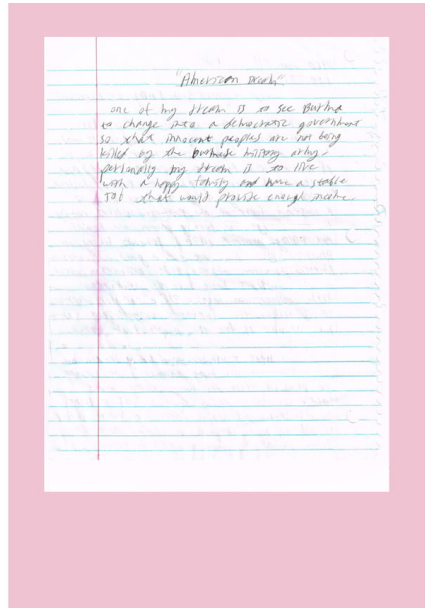 "American Dream"
one of my dream is to see Burma
to change into a democratic government
so that innocent peoples are not being
killed by the Burmese military army.
personally my dream is to live
with a happy family and have a stable
Job that would provide enough income.